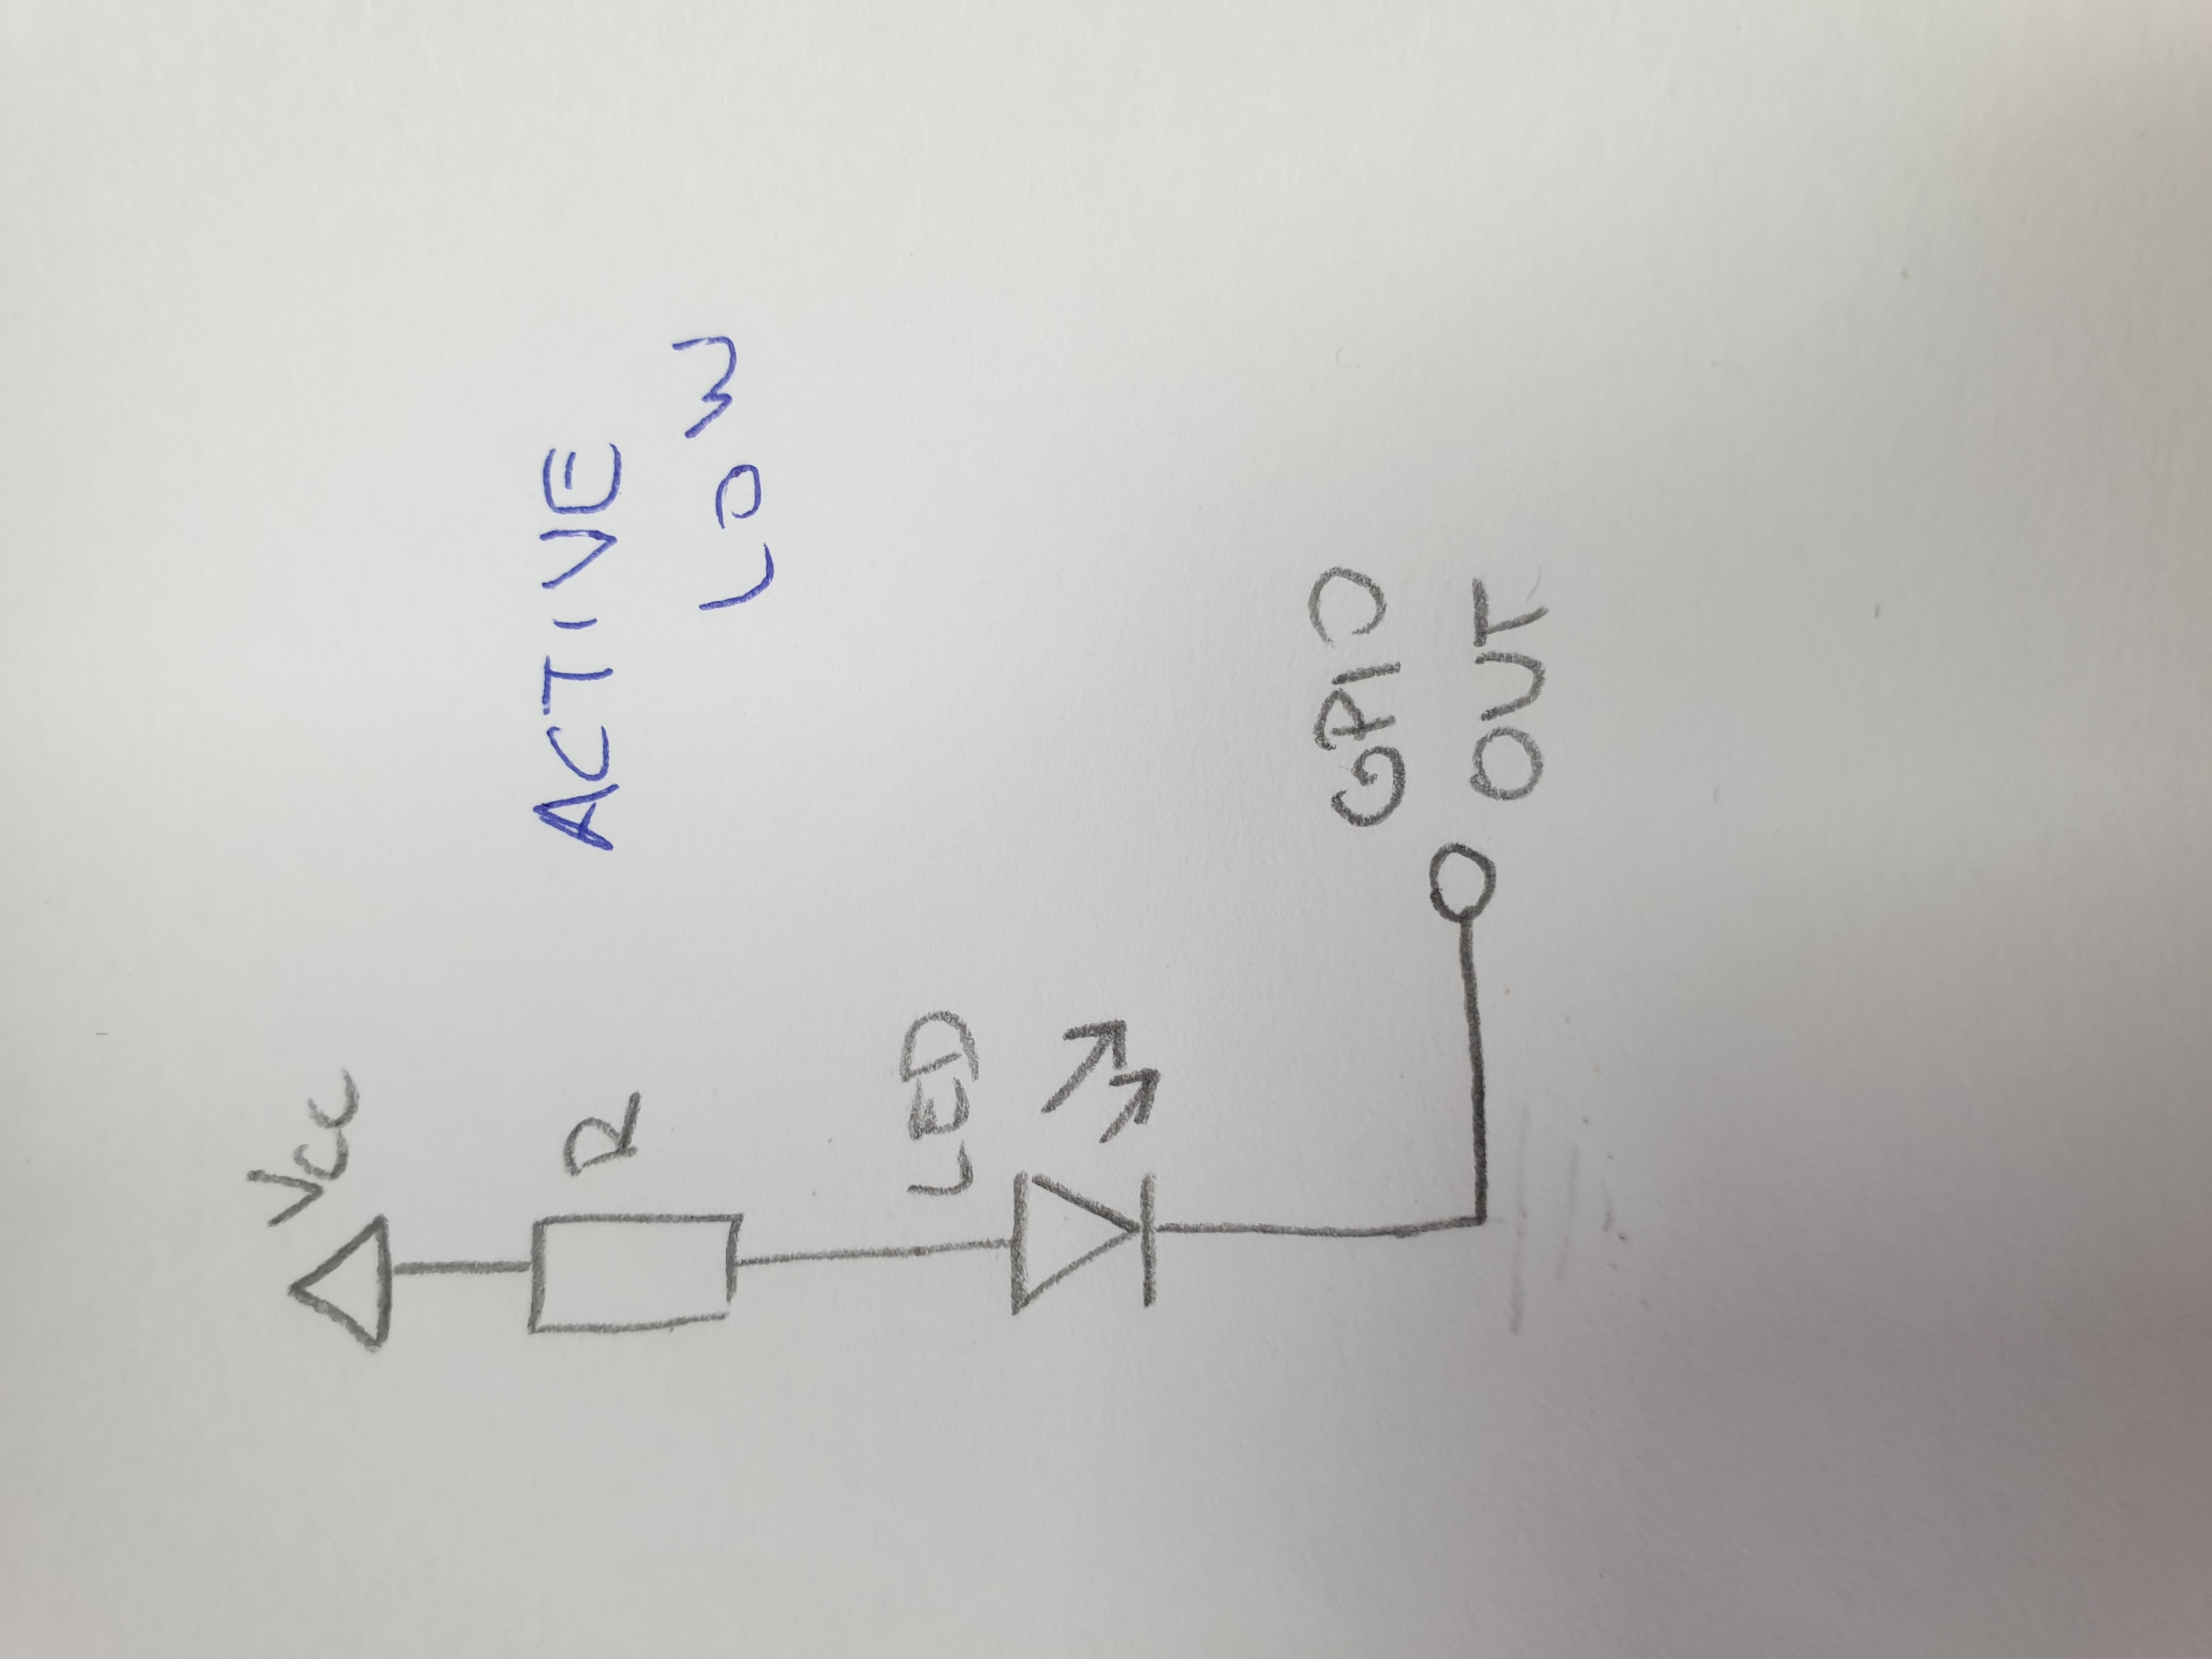 Vcc
R
ACTIVE
LOW
LED
GPIO
OUT